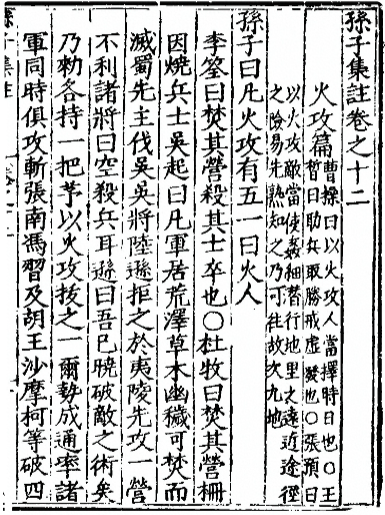 孫子集註卷之十二
火攻篇曹操曰以火攻人當擇時日也○王
晳曰助兵取勝戒虛發也○張預曰
以火攻敵當使姦細潛行地里之遠近途徑
之險易先熟知之乃可往故次九地
孫子曰凡火攻有五一曰火人
李筌曰焚其營殺其士卒也○杜牧曰焚其營柵
因燒兵士吳起曰凡軍居荒澤草木幽穢可焚而
滅蜀先主伐吳吳將陸遜拒之於夷陵先攻一營
不利諸將曰空殺兵耳遜曰吾已曉破敵之術矣
乃勑各持一把茅以火攻拔之一爾勢成通率諸
軍同時俱攻斬張南馮習及胡王沙摩柯等破四
孫子集註